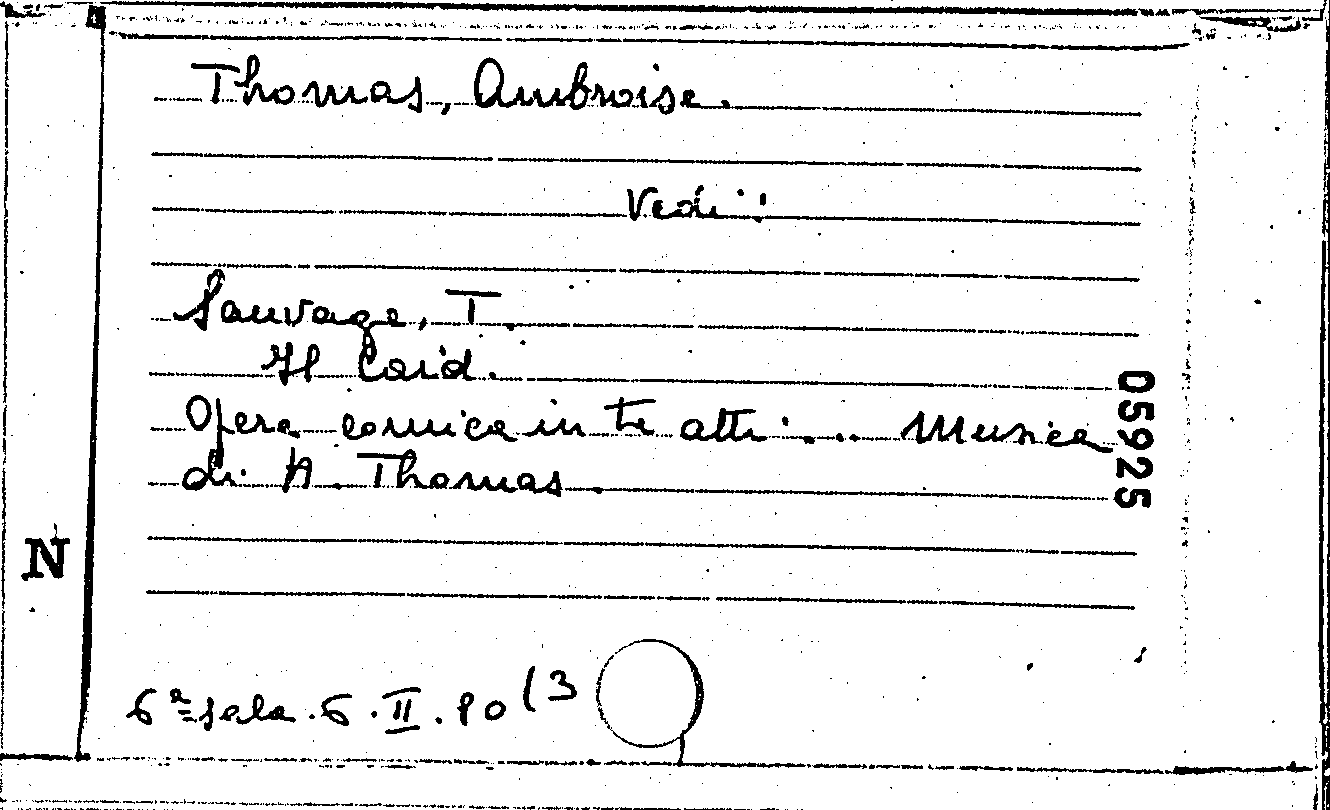 Thomas, Ambroise.
Vedi:
Sauvage, T.
Il Caïd.
Opera comica in tre atti... Musica
di A. Thomas.
05925
N
6ª sala. 6. II. 80 (3